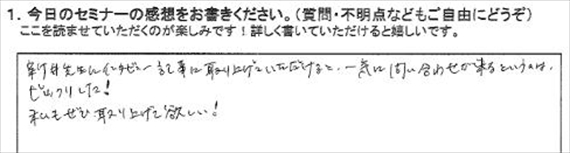 1. 今日のセミナーの感想をお書きください。(質問・不明点などもご自由にどうぞ)
ここを読ませていただくのが楽しみです!詳しく書いていただけると嬉しいです。
先生にインタビュー記事に取り上げていただけると、一気に問い合わせが来るというのは、
ビックリした!
私もぜひ取り上げて欲しい!